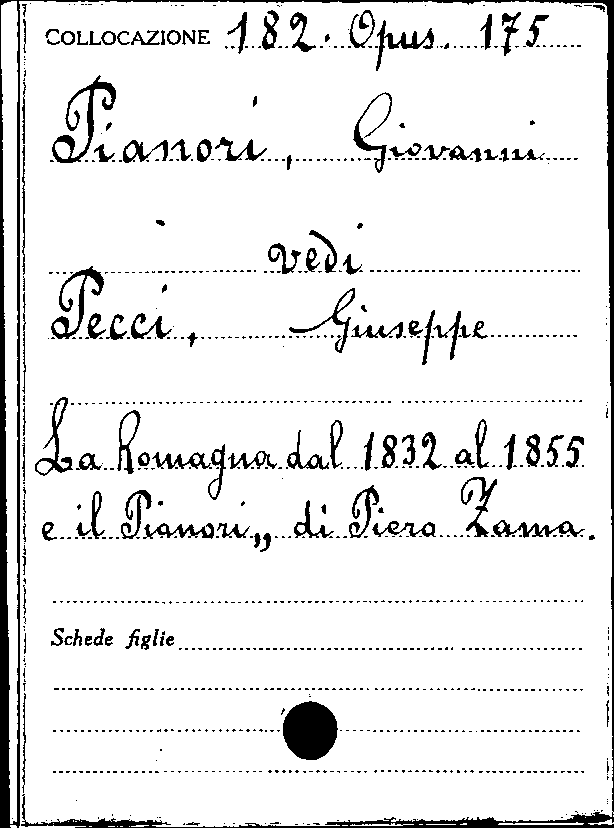 COLLOCAZIONE 182. Opus. 175
Pianori, Giovanni
vedi
Pecci, Giuseppe
La Romagna dal 1832 al 1855
e il Pianori„ di Piero Zama.
Schede figlie